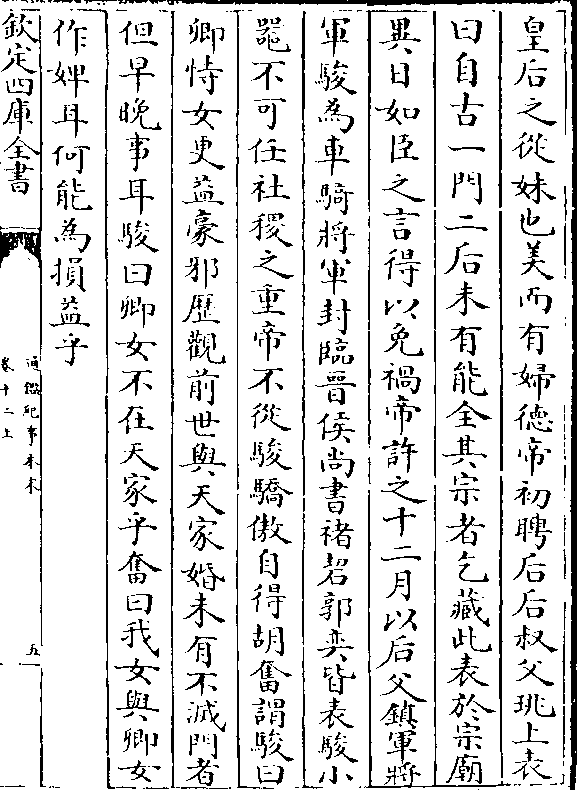 皇后之從妹也美而有婦德帝初聘后后叔父珧上表
曰自古一門二后未有能全其宗者乞藏此表於宗廟
異日如臣之言得以免禍帝許之十二月以后父鎮軍將
軍駿為車騎將軍封臨晉侯尚書褚䂮郭奕皆表駿小
器不可任社稷之重帝不從駿驕傲自得胡奮謂駿曰
卿恃女更益豪邪歷觀前世與天家婚未有不滅門者
但早晚事耳駿曰卿女不在天家乎奮曰我女與卿女
作婢耳何能為損益乎
欽定四庫全書
通鑑紀事本末
卷十二上
五